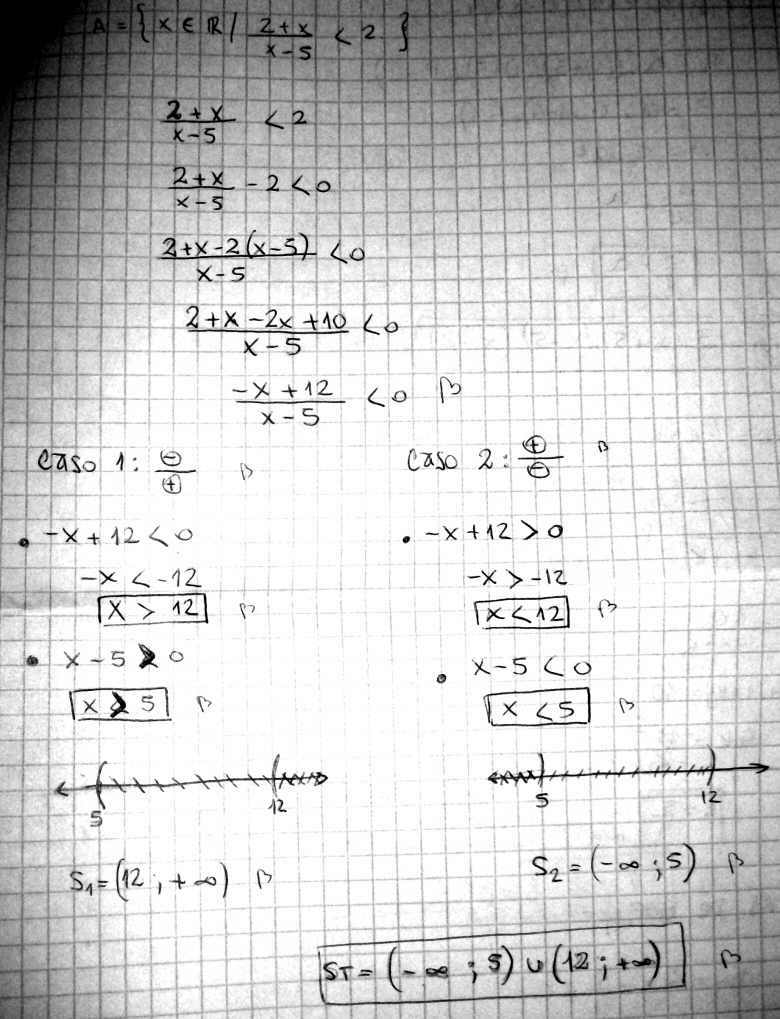 A = {x ∈ ℝ / (2+x)/(x-5) < 2}
(2+x)/(x-5) < 2
(2+x)/(x-5) - 2 < 0
(2+x-2(x-5))/(x-5) < 0
(2+x-2x+10)/(x-5) < 0
(-x+12)/(x-5) < 0 β
Caso 1: ⊖/⊕ β
-x + 12 < 0
-x < -12
x > 12 β
x - 5 > 0
x > 5 β
5 12
S₁ = (12 ; +∞) β
Caso 2: ⊕/⊖ β
-x + 12 > 0
-x > -12
x < 12 β
x - 5 < 0
x < 5 β
5 12
S₂ = (-∞ ; 5) β
ST = (-∞ ; 5) ∪ (12 ; +∞) β